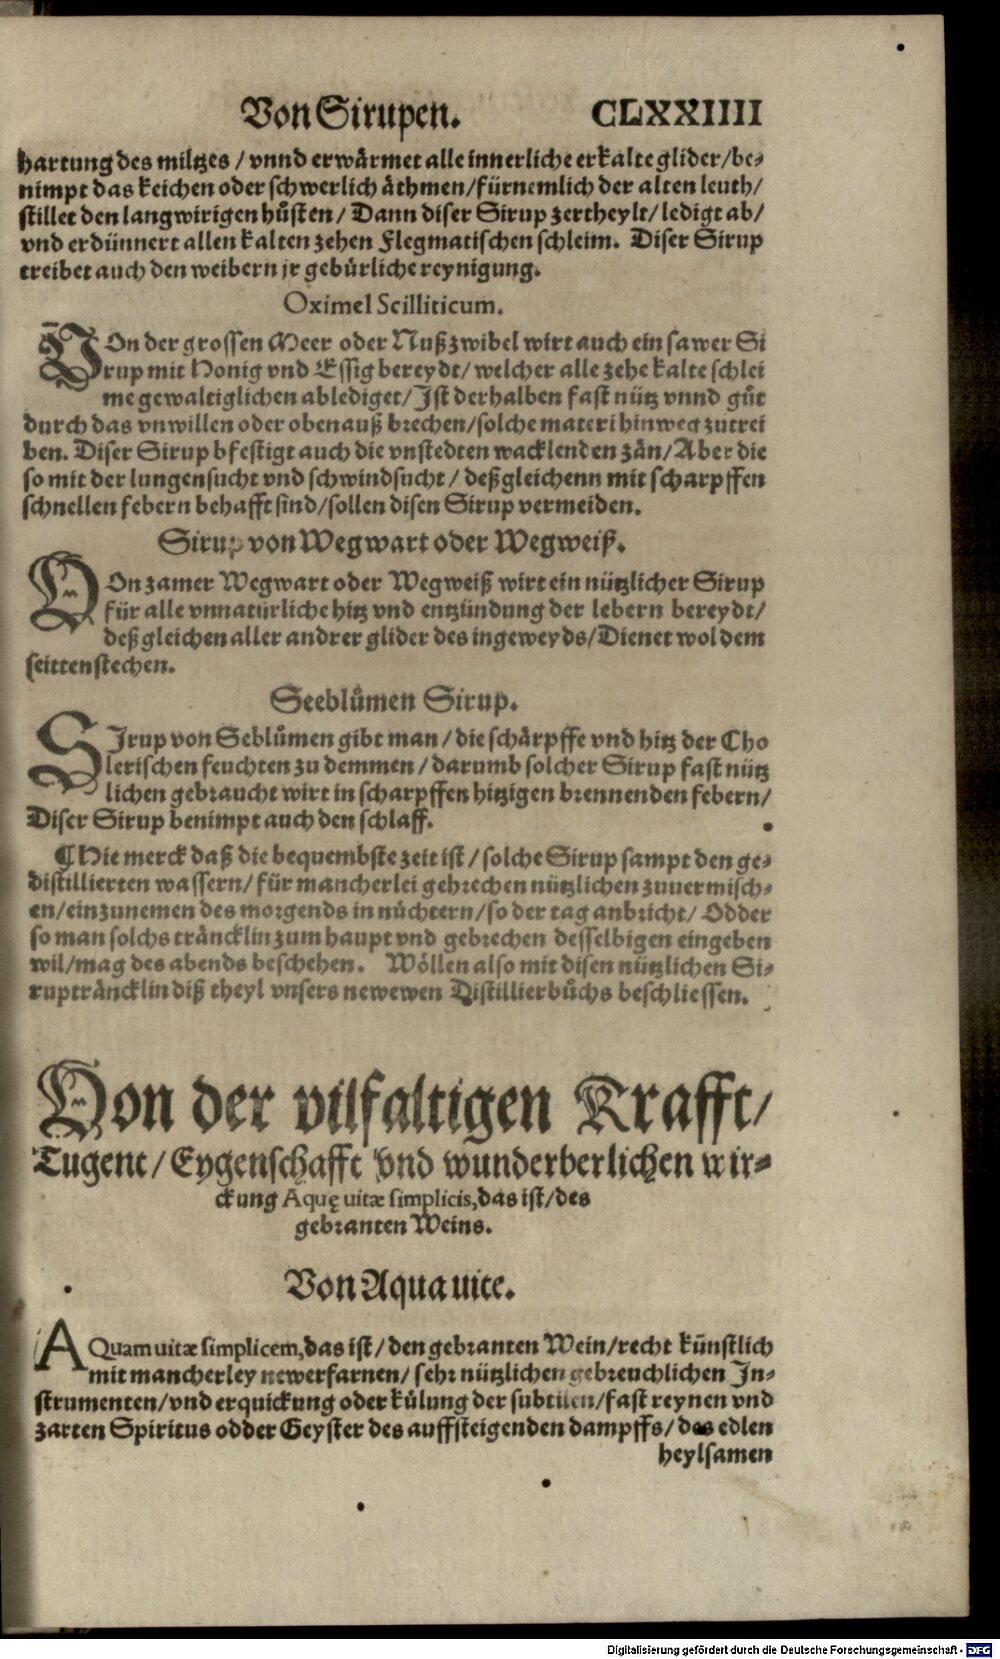 Von Sirupen. CLXXIIII
hartung des miltzes / vnnd erwärmet alle innerliche erkalte glider / be-
nimpt das keichen oder schwerlich äthmen / fürnemlich der alten leuth /
stillet den langwirigen hůsten / Dann diser Sirup zertheylt / ledigt ab /
vnd erdünnert allen kalten zehen Flegmatischen schleim. Diser Sirup
treibet auch den weibern jr gebürliche reynigung.
Oximel Scilliticum.
VOn der grossen Meer oder Nußzwibel wirt auch ein sawer Si
rup mit Honig vnd Essig bereydt / welcher alle zehe kalte schlei
me gewaltiglichen ablediget / Ist derhalben fast nütz vnnd gůt
durch das vnwillen oder obenauß brechen / solche materi hinweg zutrei
ben. Diser Sirup bfestigt auch die vnstedten wacklenden zän / Aber die
so mit der lungensucht vnd schwindsucht / deßgleichenn mit scharpffen
schnellen febern behafft sind / sollen disen Sirup vermeiden.
Sirup von Wegwart oder Wegweiß.
VOn zamer Wegwart oder Wegweiß wirt ein nützlicher Sirup
für alle vnnatürliche hitz vnd entzündung der lebern bereydt /
deßgleichen aller andrer glider des ingeweyds / Dienet wol dem
seittenstechen.
Seeblůmen Sirup.
SIrup von Seblůmen gibt man / die schärpffe vnd hitz der Cho
lerischen feuchten zu demmen / darumb solcher Sirup fast nütz
lichen gebraucht wirt in scharpffen hitzigen brennenden febern /
Diser Sirup benimpt auch den schlaff.
¶ Hie merck daß die bequembste zeit ist / solche Sirup sampt den ge-
distillierten wassern / für mancherlei gebrechen nützlichen zuuermisch-
en / einzunemen des morgends in nüchtern / so der tag anbricht / Odder
so man solchs träncklin zum haupt vnd gebrechen desselbigen eingeben
wil / mag des abends beschehen. Wöllen also mit disen nützlichen Si-
ruptràncklin diß theyl vnsers newewen Distillierbůchs beschliessen.
Von der vilfaltigen Krafft /
Tugent / Eygenschafft vnd wunderberlichen wir-
ckung Aquę uitæ simplicis, das ist / des
gebranten Weins.
Von Aqua uite.
AQuam uitæ simplicem, das ist / den gebranten Wein / recht künstlich
mit mancherley newerfarnen / sehr nützlichen gebreuchlichen In-
strumenten / vnd erquickung oder külung der subtilen / fast reynen vnd
zarten Spiritus odder Geyster des auffsteigenden dampffs / des edlen
heylsamen
Digitalisierung gefördert durch die Deutsche Forschungsgemeinschaft - DFG